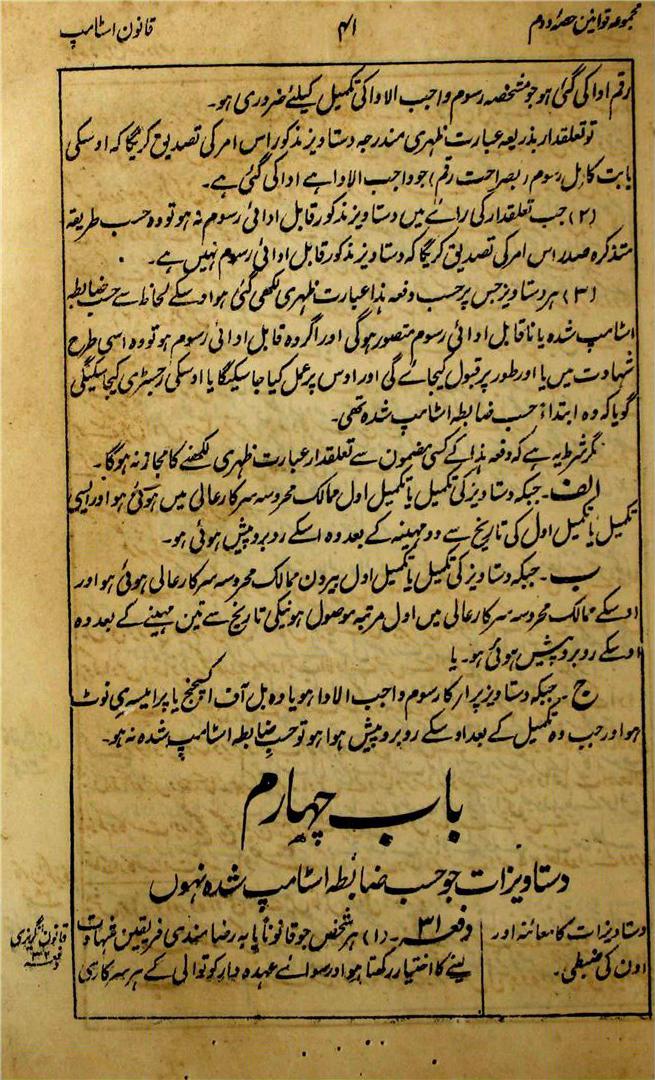 مجموعہ قوانین حصۂ دوم
۴۱
قانون اسٹامپ
رقم ادا کی گئی ہو جو مشخصہ رسوم واجب الادا کی تکمیل کیلئے ضروری ہو۔
تو تعلقدار بذریعہ عبارت ظہری مندرجہ دستاویز مذکور اس امر کی تصدیق کریگا کہ اوسکی
بابت کامل رسوم (بصراحت رقم) جو واجب الادا ہے ادا کی گئی ہے۔
(۲) جب تعلقدار کی رائے میں دستاویز مذکور قابل ادائی رسوم نہ ہو تو وہ حسب طریقہ
متذکرہ صدر اس امر کی تصدیق کریگا کہ دستاویز مذکور قابل ادائی رسوم نہیں ہے۔
(۳) ہر دستاویز جس پر حسب دفعہ ہذا عبارت ظہری لکھی گئی ہو اوسکے لحاظ سے حسب ضابطہ
اسٹامپ شدہ یا ناقابل ادائی رسوم متصور ہوگی اور اگر وہ قابل ادائی رسوم ہو تو وہ اسی طرح
شہادت میں یا اور طور پر قبول کیجائے گی اور اوس پر عمل کیا جاسکیگا یا اوسکی رجسٹری کیجاسکیگی
گویا کہ وہ ابتداءً حسب ضابطہ اسٹامپ شدہ تھی۔
مگر شرط یہ ہے کہ دفعہ ہذا کے کسی مضمون سے تعلقدار عبارت ظہری لکھنے کا مجاز نہ ہوگا۔
الف۔ جبکہ دستاویز کی تکمیل یا تکمیل اول ممالک محروسہ سرکار عالی میں ہوئی ہو اور ایسی
تکمیل یا تکمیل اول کی تاریخ سے دو مہینہ کے بعد وہ اسکے روبرو پیش ہوئی ہو۔
ب۔ جبکہ دستاویز کی تکمیل یا تکمیل اول بیرون ممالک محروسہ سرکار عالی ہوئی ہو اور
اوسکے ممالک محروسہ سرکار عالی میں اول مرتبہ موصول ہونیکی تاریخ سے تین مہینے کے بعد وہ
اوسکے روبرو پیش ہوئی ہو۔ یا
ج۔ جبکہ دستاویز پر ار کا رسوم واجب الادا ہو یا وہ بل آف اکسچنج یا پرامیسری نوٹ
ہو اور جب وہ تکمیل کے بعد اوسکے روبرو پیش ہوا ہو تو حسب ضابطہ اسٹامپ شدہ نہ ہو۔
باب چہارم
دستاویزات جو حسب ضابطہ اسٹامپ شدہ نہوں
دستاویزات کا معائنہ اور
اون کی ضبطی۔
دفعہ ۳۱۔ (۱) ہر شخص جو قانوناً یا بہ رضامندی فریقین شہادت
لینے کا اختیار رکھتا ہو اور سوائے عہدہ دار کوتوالی کے ہر سرکاری
قانون انگریزی
دفعہ ۳۳